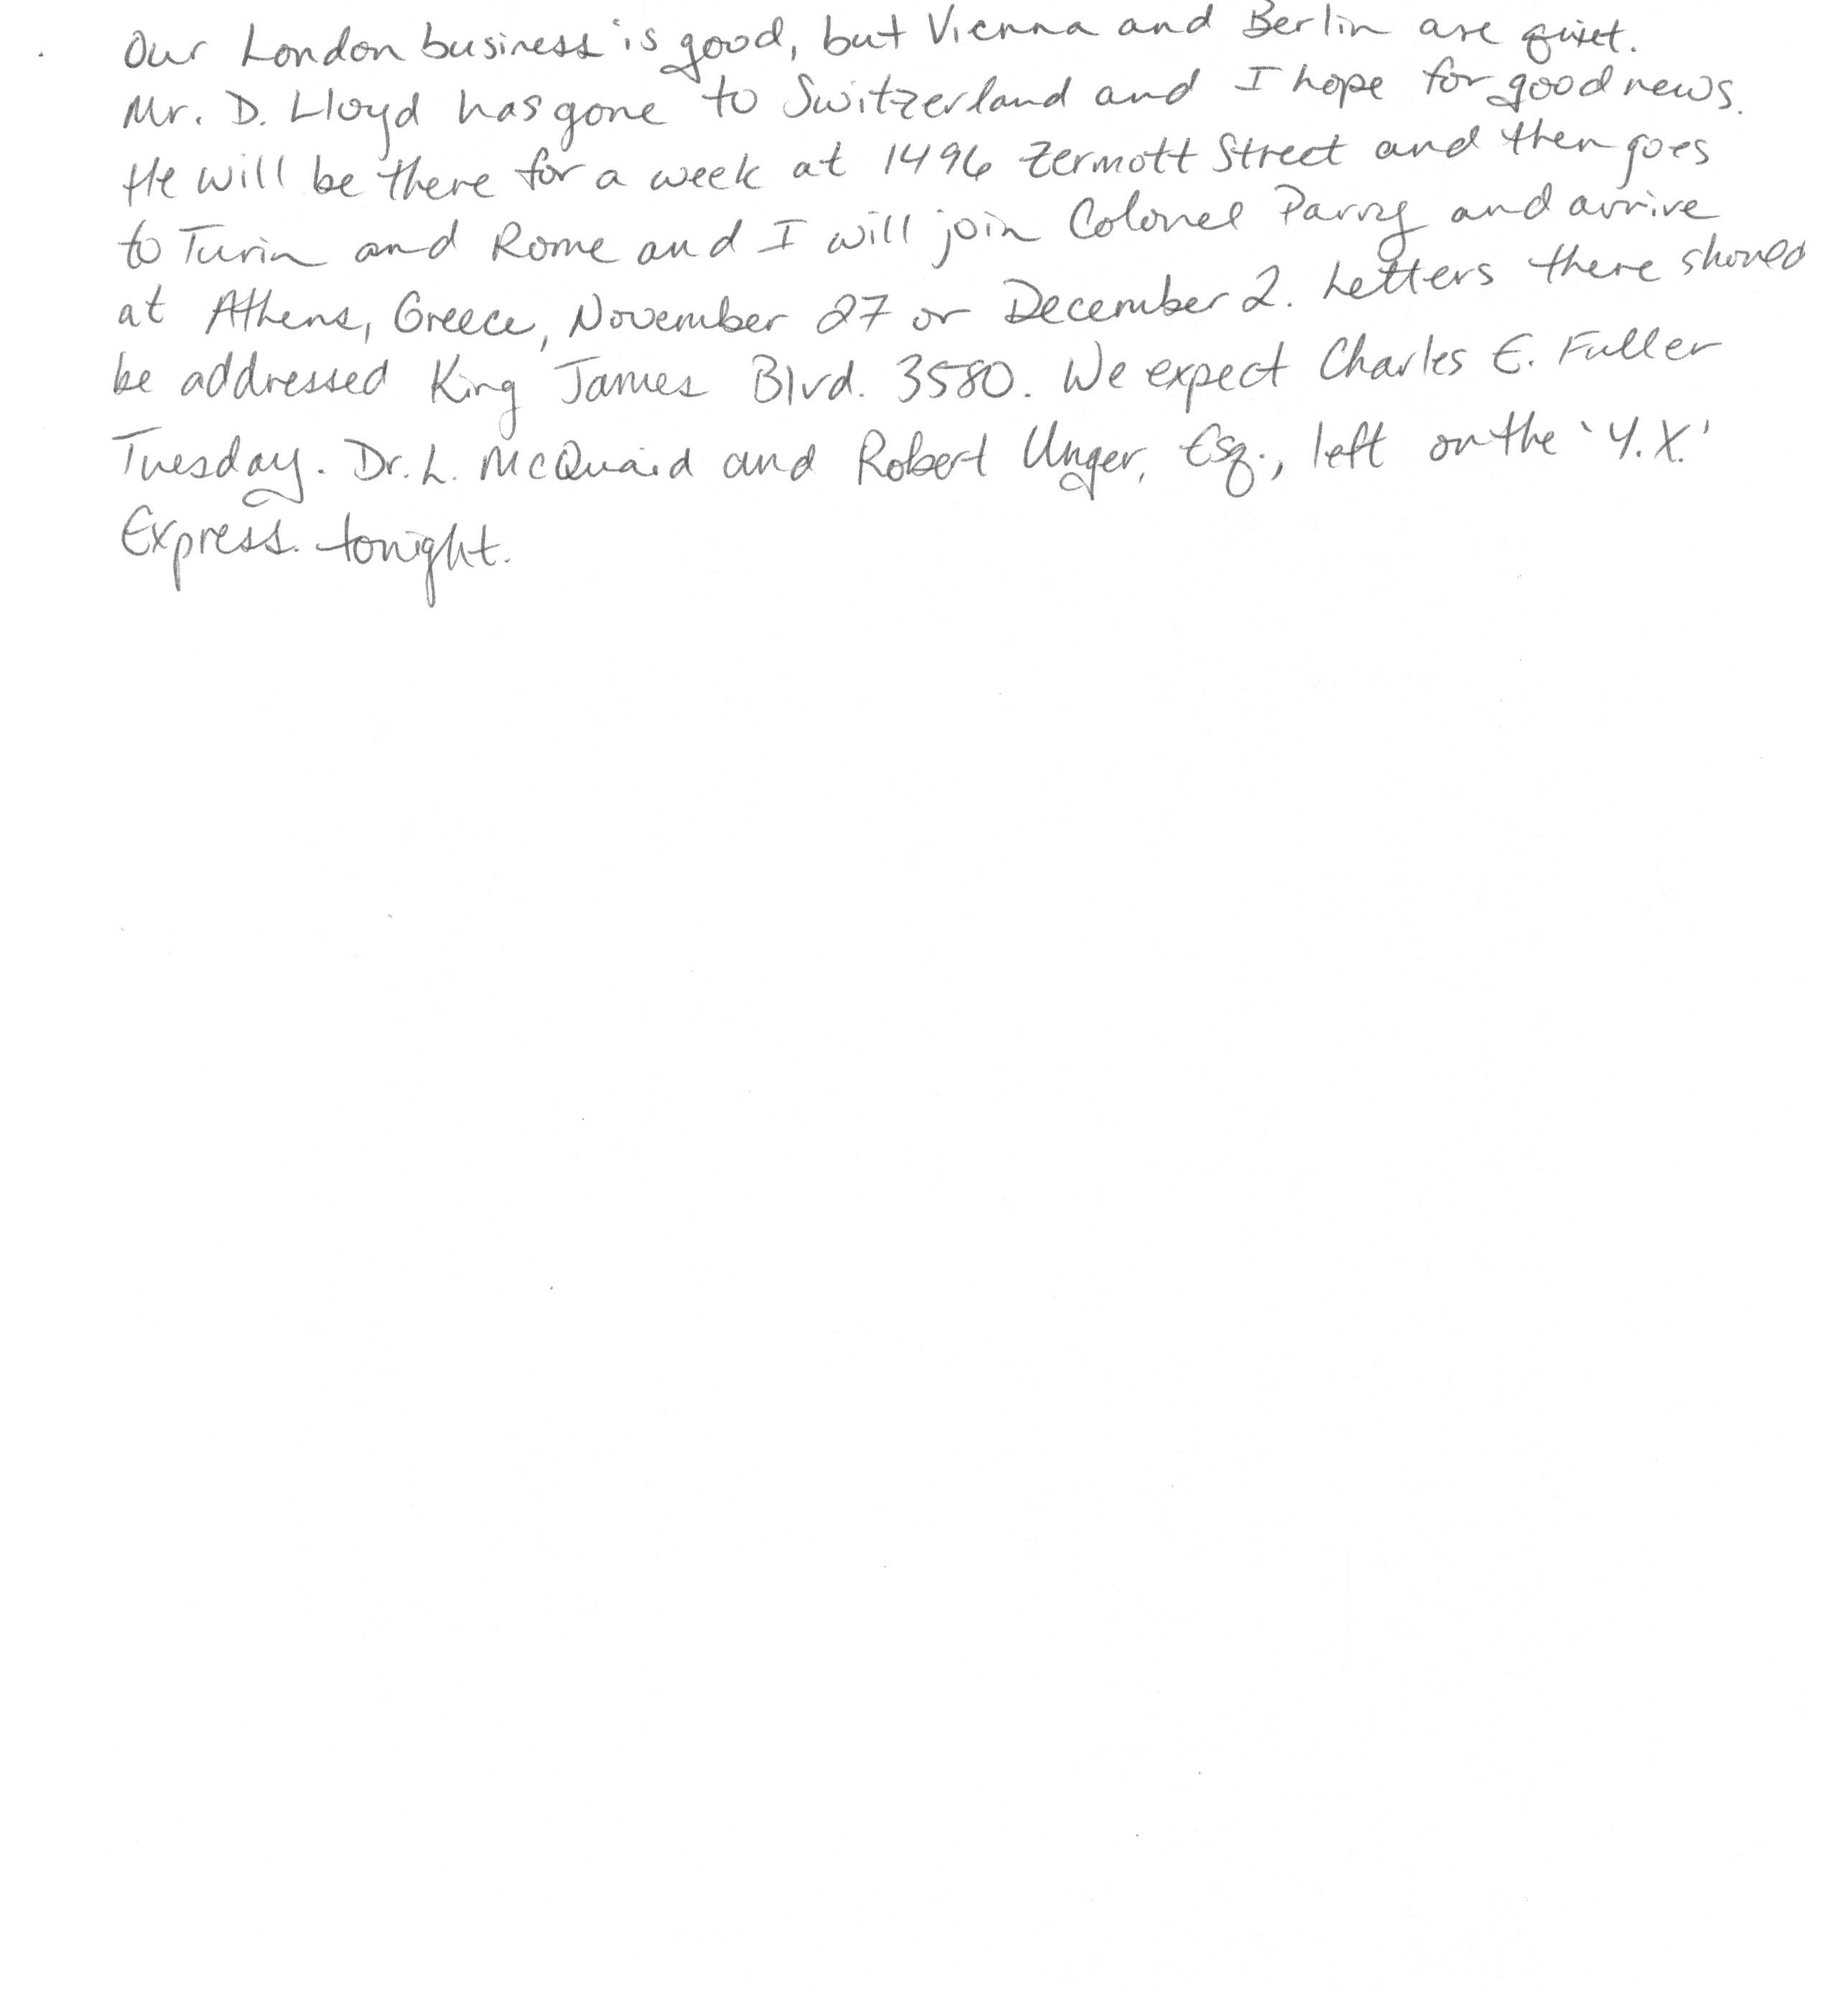 Our London business is good, but Vienna and Berlin are quiet.
Mr. D. Lloyd has gone to Switzerland and I hope for good news.
He will be there for a week at 1496 Zermott Street and then goes
to Turin and Rome and I will join Colonel Parry and arrive
at Athens, Greece, November 27 or December 2. Letters there should
be addressed King James Blvd. 3580. We expect Charles E. Fuller
Tuesday. Dr. L. McQuaid and Robert Unger, Esq., left on the 'Y.X.'
Express tonight.